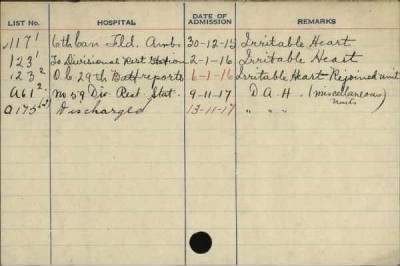 LIST No. HOSPITAL DATE OF ADMISSION REMARKS
J117¹ 6th Can Fld. Amb. 30-12-15 Irritable Heart
123¹ To Divisional Rest Station 2-1-16 Irritable Heart
123² O.C. 29th Batt reports 6-1-16 Irritable Heart Rejoined unit
a61² No 59 Div. Rest. Stat. 9-11-17 D A H. (miscellaneous units)
a175 Discharged 13-11-17 " " "